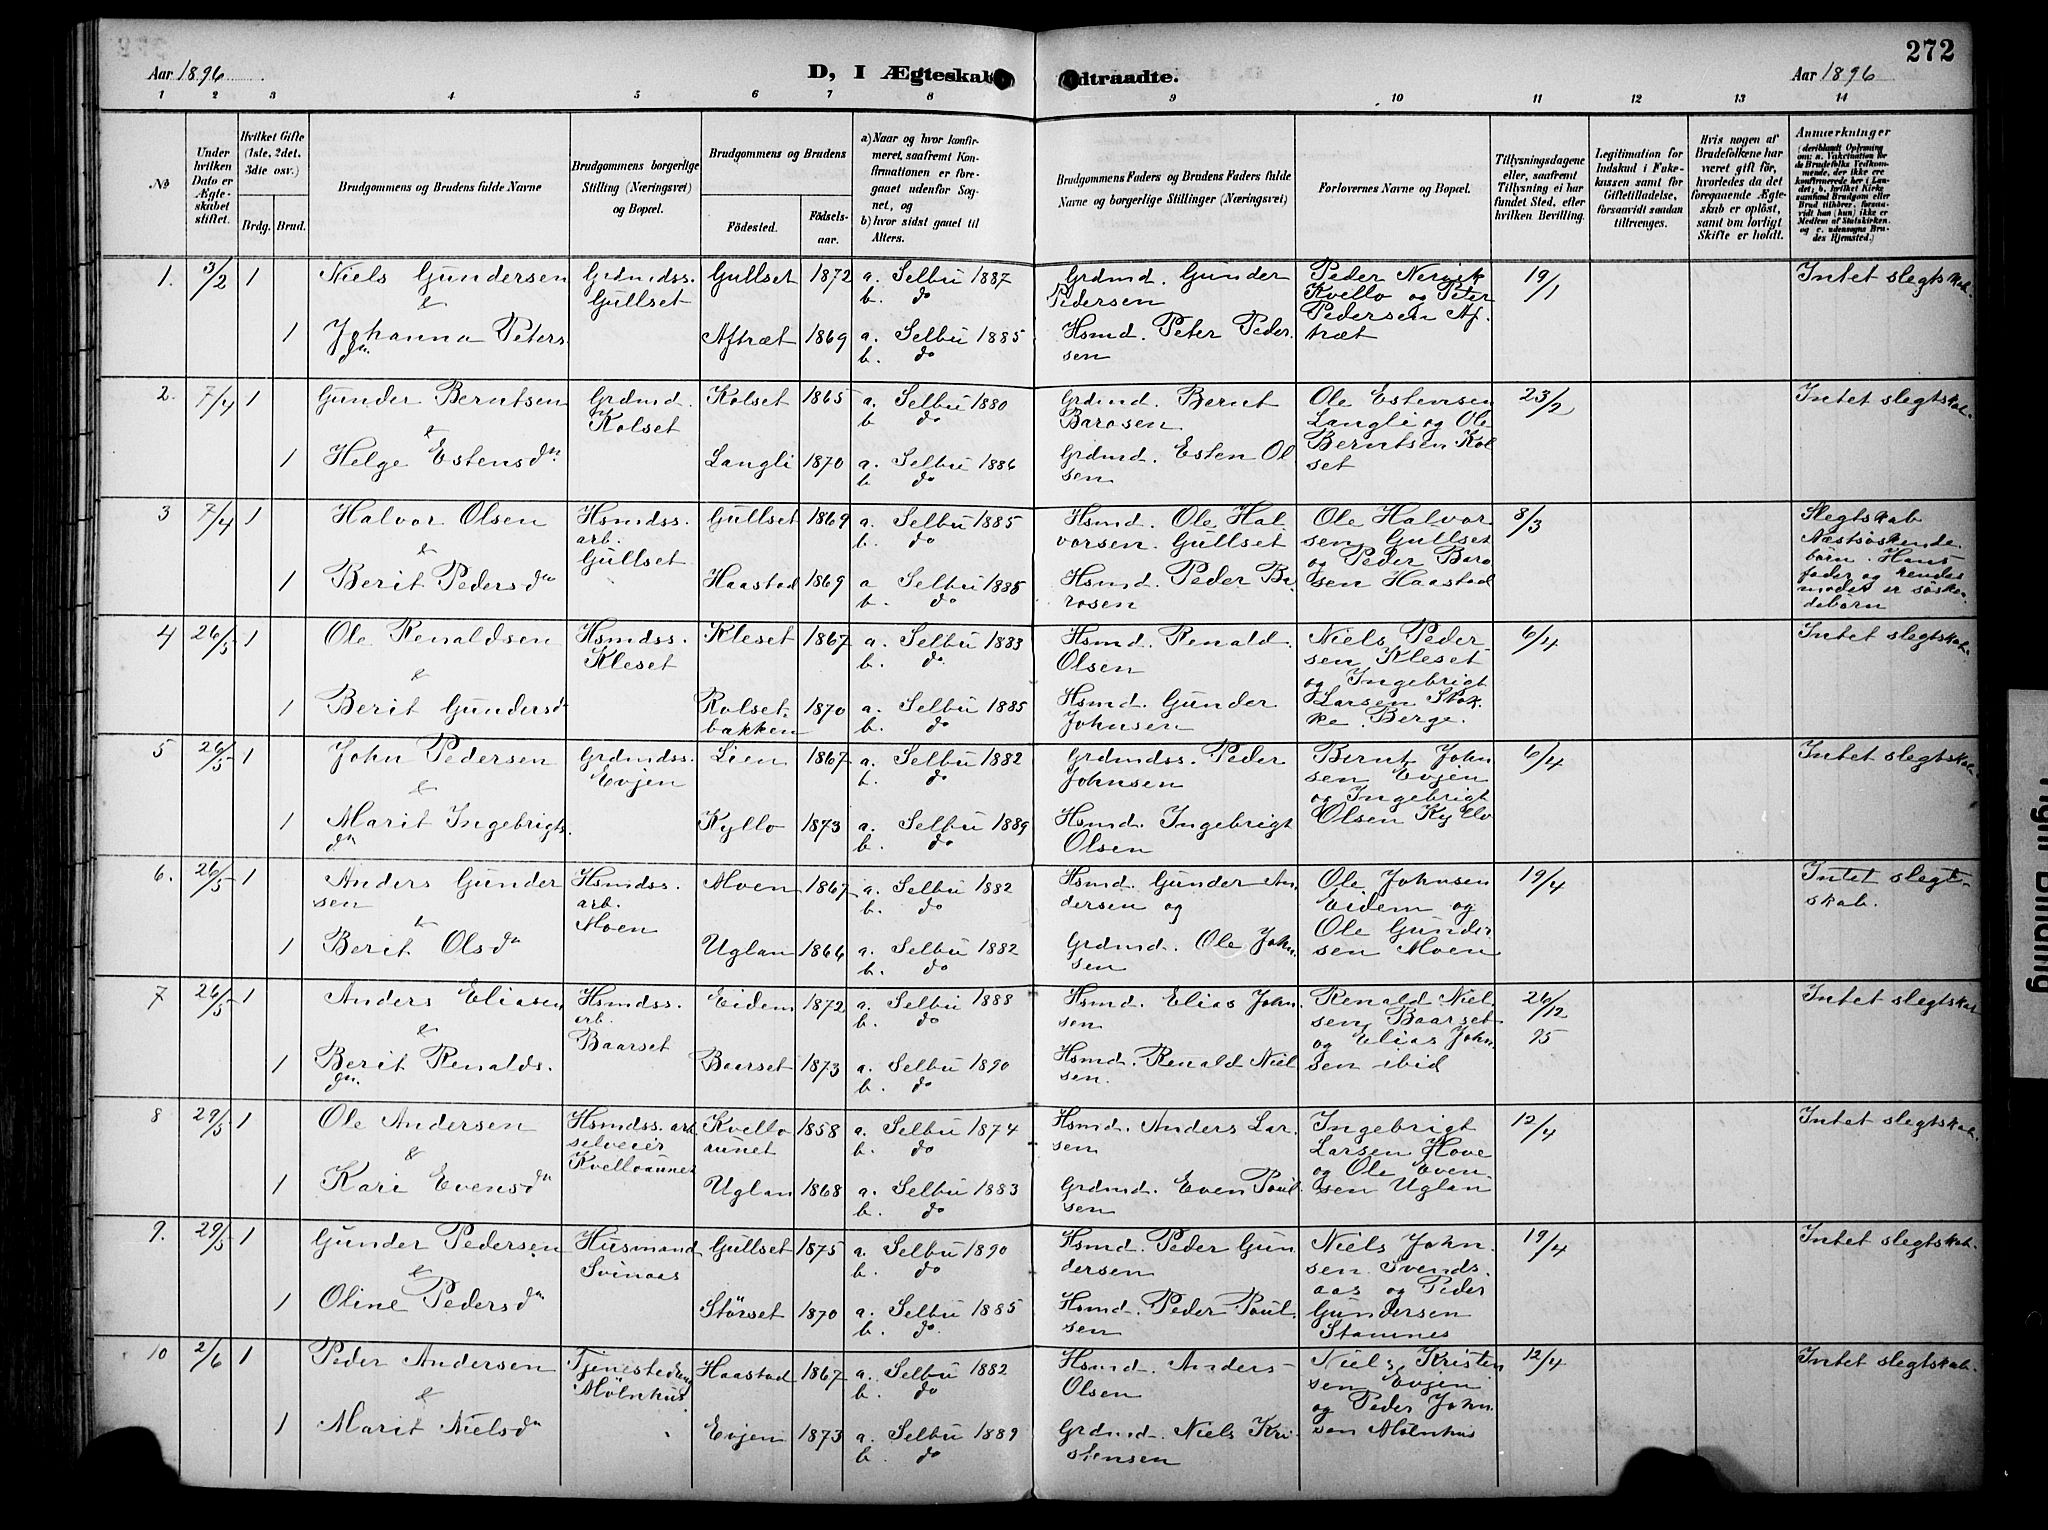 272
Aar 1896
D, I Ægteskab Indtraadte.
Aar 1896
1 2 3 4 5 6 7 8 9 10 11 12 13 14
№
Under hvilken Dato er Ægteskabet stiftet.
Hvilket Gifte (1ste, 2det, 3die osv.)
Brdg. Brud.
Brudgommens og Brudens fulde Navne
Brudgommens borgerlige Stilling (Næringsvei) og Bopæl.
Brudgommens og Brudens
Födested.
Födselsaar.
a) Naar og hvor konfirmeret, saafremt Konfirmationen er foregaaet udenfor Sognet, og
b) hvor sidst gaaet til Alters.
Brudgommens Faders og Brudens Faders fulde Navne og borgerlige Stillinger (Næringsvei)
Forlovernes Navne og Bopæl.
Tillysningsdagene eller, saafremt Tillysning ei har fundet Sted, efter hvilken Bevilling.
Legitimation for Indskud i Enkekassen samt for Giftetilladelse, forsaavidt saadan tiltrænges.
Hvis nogen af Brudefolkene har været gift för, hvorledes da det foregaaende Ægteskab er oplöst, samt om lovligt Skifte er holdt.
Anmærkninger (deriblandt Oplysning om: a. Vakcination for de Brudefolks Vedkommende, der ikke ere konfirmerede her i Landet; b. hvilket Kirkesamfund Brudgom eller Brud tilhörer, forsaavidt han (hun) ikke er Medlem af Statskirken, og c. udensogns Brudes Hjemsted.)
1. 3/2 1 Niels Gundersen Grdmdss. Gullset Gullset 1872 a. Selbu 1887 b. do Grdmd. Gunder Pedersen Peder Nervik Kvello og Peter Pedersen Aftræt 19/1 Intet slegtskab.
&
1 Johanna Petersdn Aftræt 1869 a. Selbu 1885 b. do Hsmd. Peter Pedersen
2. 7/4 1 Gunder Berntsen Grdmd. Kolset Kolset 1865 a. Selbu 1880 b do Grdmd. Bernt Barosen Ole Estensen Langli og Ole Berntsen Kolset 23/2 Intet slegtskab.
&
1 Helge Estensdn Langli 1870 a. Selbu 1886 b do Grdmd. Esten Olsen
3 7/4 1 Halvor Olsen Hsmdss. arb. Gullset Gullset 1869 a. Selbu 1885 b. do Hsmd. Ole Halvorsen. Gullset Ole Halvorsen Gullset og Peder Barosen Haastad 8/3 Slegtskab Næstsøskendebørn. Hans fader og hendes moder er søskendebørn
&
1 Berit Pedersdn Haastad 1869 a Selbu 1885 b. do Hsmd. Peder Barosen
4 26/5 1 Ole Renaldsen Hsmdss. Kleset Kleset 1867 a. Selbu 1883 b. do Hsmd. Renald Olsen Niels Pedersen Kleset og Ingebrigt Larsen Stokke Berge. 6/4 Intet slegtskab.
&
1 Berit Gundersd Rolsetbakken 1870 a. Selbu 1885 b. do Hsmd. Gunder Johnsen
5 26/5 1 John Pedersen Grdmdss. Evjen Lien 1867 a. Selbu 1882 b. do Grdmdss. Peder Johnsen Bernt Johnsen Evjen og Ingebrigt Olsen Kyllo 6/4 Intet slegtskab.
&
1 Marit Ingebrigtsdn Kyllo 1873 a. Selbu 1889 b. do Hsmd. Ingebrigt Olsen
6. 26/5 1 Anders Gundersen Hsmdss. arb. Moen Moen 1867 a. Selbu 1882 b. do Hsmd. Gunder Andersen og Ole Johnsen Eidem og Ole Gundersen Moen 19/4 Intet slegtskab.
&
1 Berit Olsdn Uglan 1866 a. Selbu 1882 b. do Grdmd. Ole Johnsen
7 26/5 1 Anders Eliasen Hsmdss. arb. Baarset Eidem 1872 a. Selbu 1888 b. do Hsmd. Elias Johnsen Renald Nielsen Baarset og Elias Johnsen ibid 26/12 95 Intet slegtskab
&
1 Berit Renaldsdn. Baarset 1873 a. Selbu 1890 b. do Hsmd. Renald Nielsen.
8 29/5 1 Ole Andersen Hsmdss. arb selveier Kvelloaunet Kvelloaunet 1858 a. Selbu 1874 b. do Hsmd. Anders Larsen Ingebrigt Larsen Hove og Ole Evensen Uglan 12/4 Intet slegtskab.
&
1 Kari Evensdn Uglan 1868 a. Selbu 1883 b. do Grdmd. Even Paulsen
9. 29/5 1 Gunder Pedersen Husmand Svinaas Gullset 1875 a. Selbu 1890 b. do Hsmd. Peder Gundersen Niels Johnsen Svendsaas og Peder Gundersen Stamnes 19/4 Intet slegtskab.
&
1 Oline Pedersdn Störset 1870 a. Selbu 1885 b. do. Hsmd. Peder Paulsen
10 2/6 1 Peder Andersen Tjenestedreng Mölnhus Haastad 1867 a. Selbu 1882 b. do Hsmd. Anders Olsen Niels Kristensen Evjen og Peder Johnsen Mölnhus 12/4 Intet slegtskab.
&
1 Marit Nielsdn Evjen 1873 a. Selbu 1889 b. do Grdmd. Niels Kristensen
Tight Binding